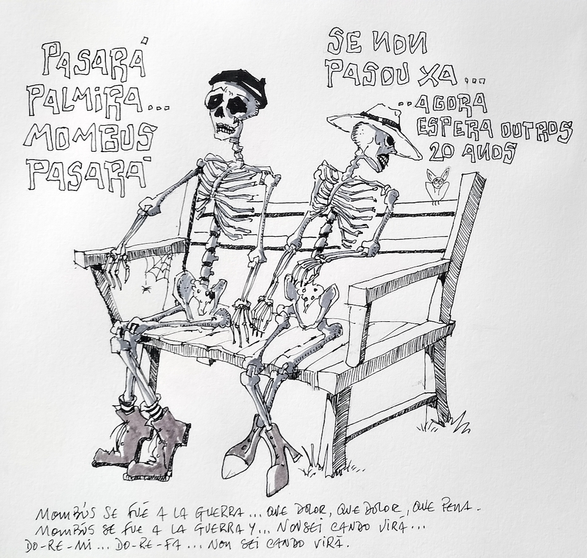 PASARÁ
PALMIRA...
MOMBUS
PASARÁ
SE NON
PASOU XA...
..AGORA
ESPERA OUTROS
20 ANOS
MOMBÚS SE FUÉ A LA GUERRA... QUE DOLOR, QUE DOLOR, QUE PENA.
MOMBÚS SE FUE A LA GUERRA Y... NON SEI CANDO VIRA...
DO-RE-MI... DO-RE-FA... NON SEI CANDO VIRÁ.